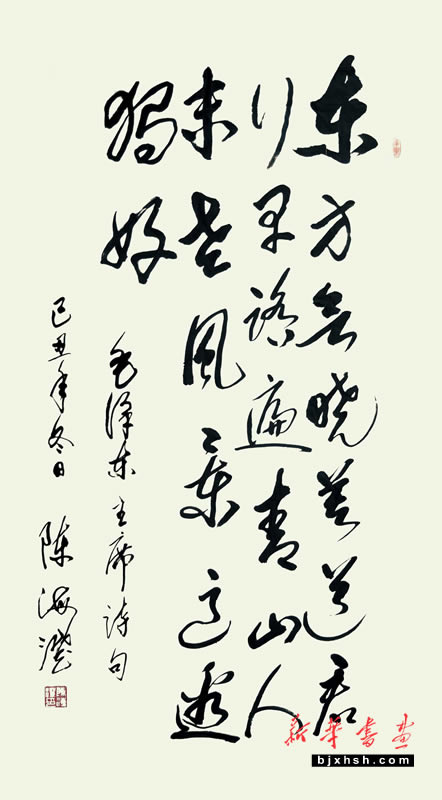 东方欲晓莫道君
行早踏遍青山人
未老风景这边
独好
毛泽东主席诗句
己丑年冬日 陈海
新华书画
bjxhsh.com